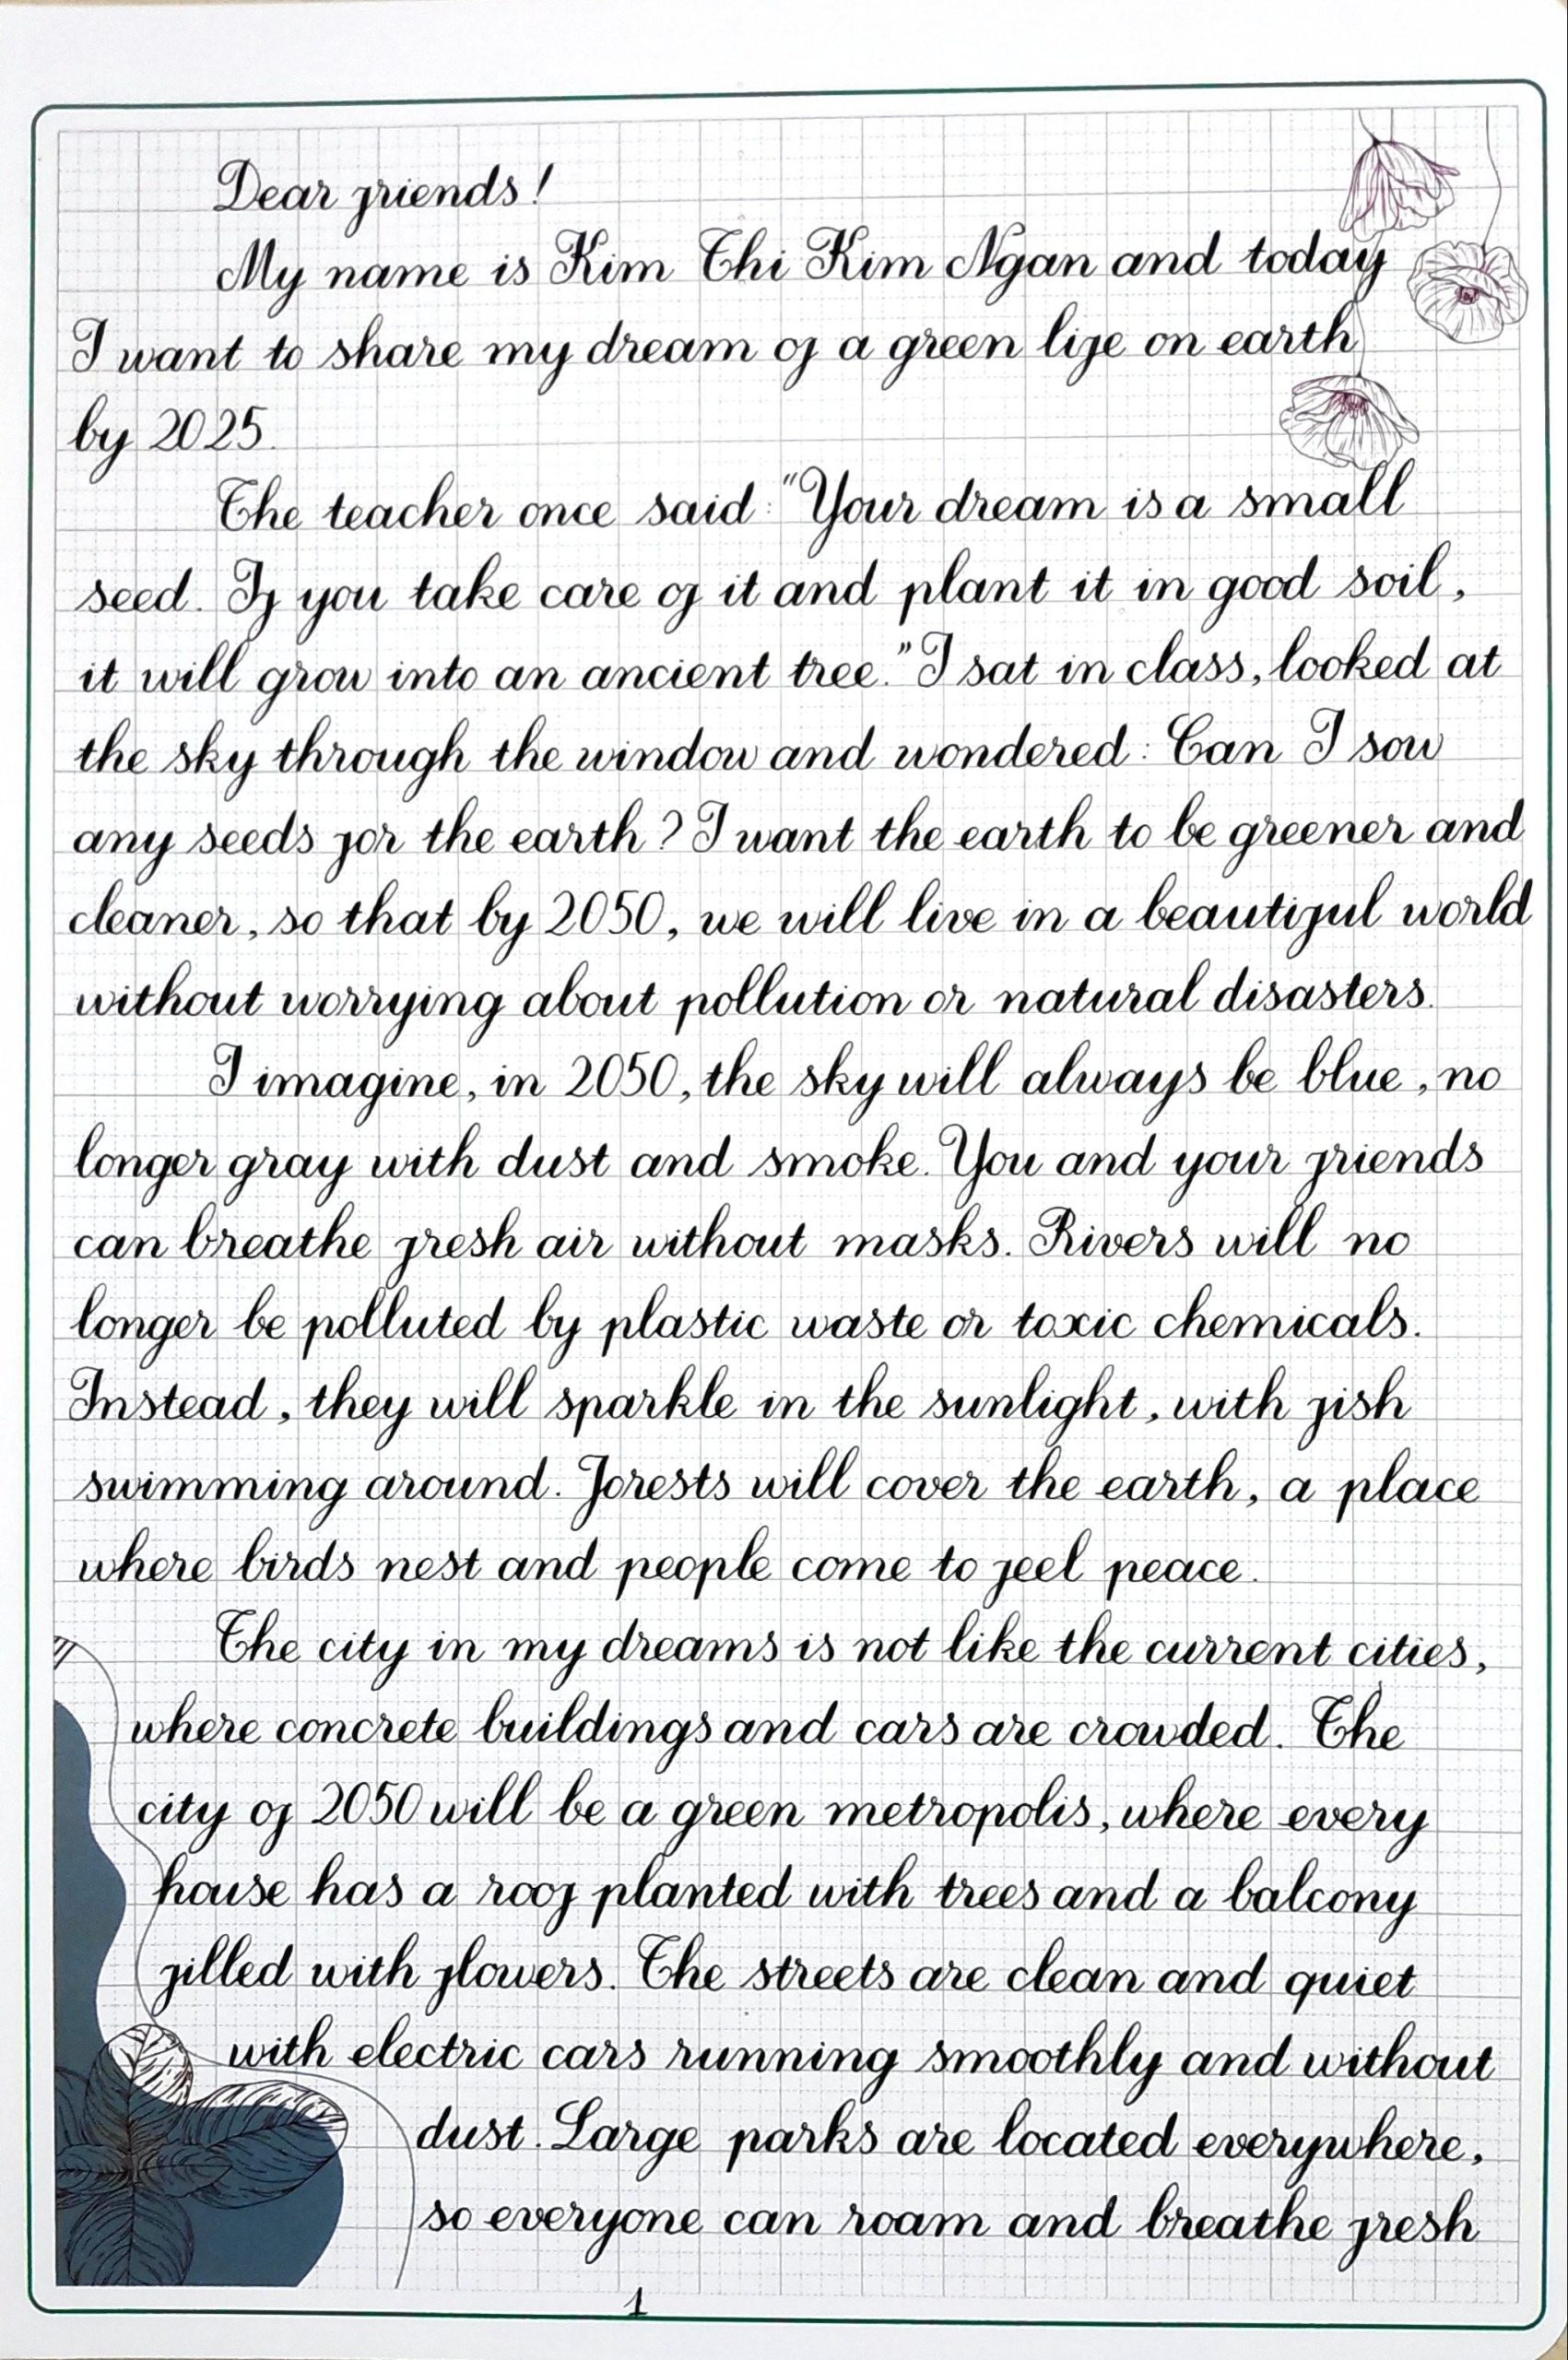 Dear friends!
My name is Kim Thi Kim Ngan and today
I want to share my dream of a green life on earth
by 2025.
The teacher once said: "Your dream is a small
seed. If you take care of it and plant it in good soil,
it will grow into an ancient tree." I sat in class, looked at
the sky through the window and wondered: Can I sow
any seeds for the earth? I want the earth to be greener and
cleaner, so that by 2050, we will live in a beautiful world
without worrying about pollution or natural disasters.
I imagine, in 2050, the sky will always be blue, no
longer gray with dust and smoke. You and your friends
can breathe fresh air without masks. Rivers will no
longer be polluted by plastic waste or toxic chemicals.
Instead, they will sparkle in the sunlight, with fish
swimming around. Forests will cover the earth, a place
where birds nest and people come to feel peace.
The city in my dreams is not like the current cities,
where concrete buildings and cars are crowded. The
city of 2050 will be a green metropolis, where every
house has a roof planted with trees and a balcony
filled with flowers. The streets are clean and quiet
with electric cars running smoothly and without
dust. Large parks are located everywhere,
so everyone can roam and breathe fresh
1